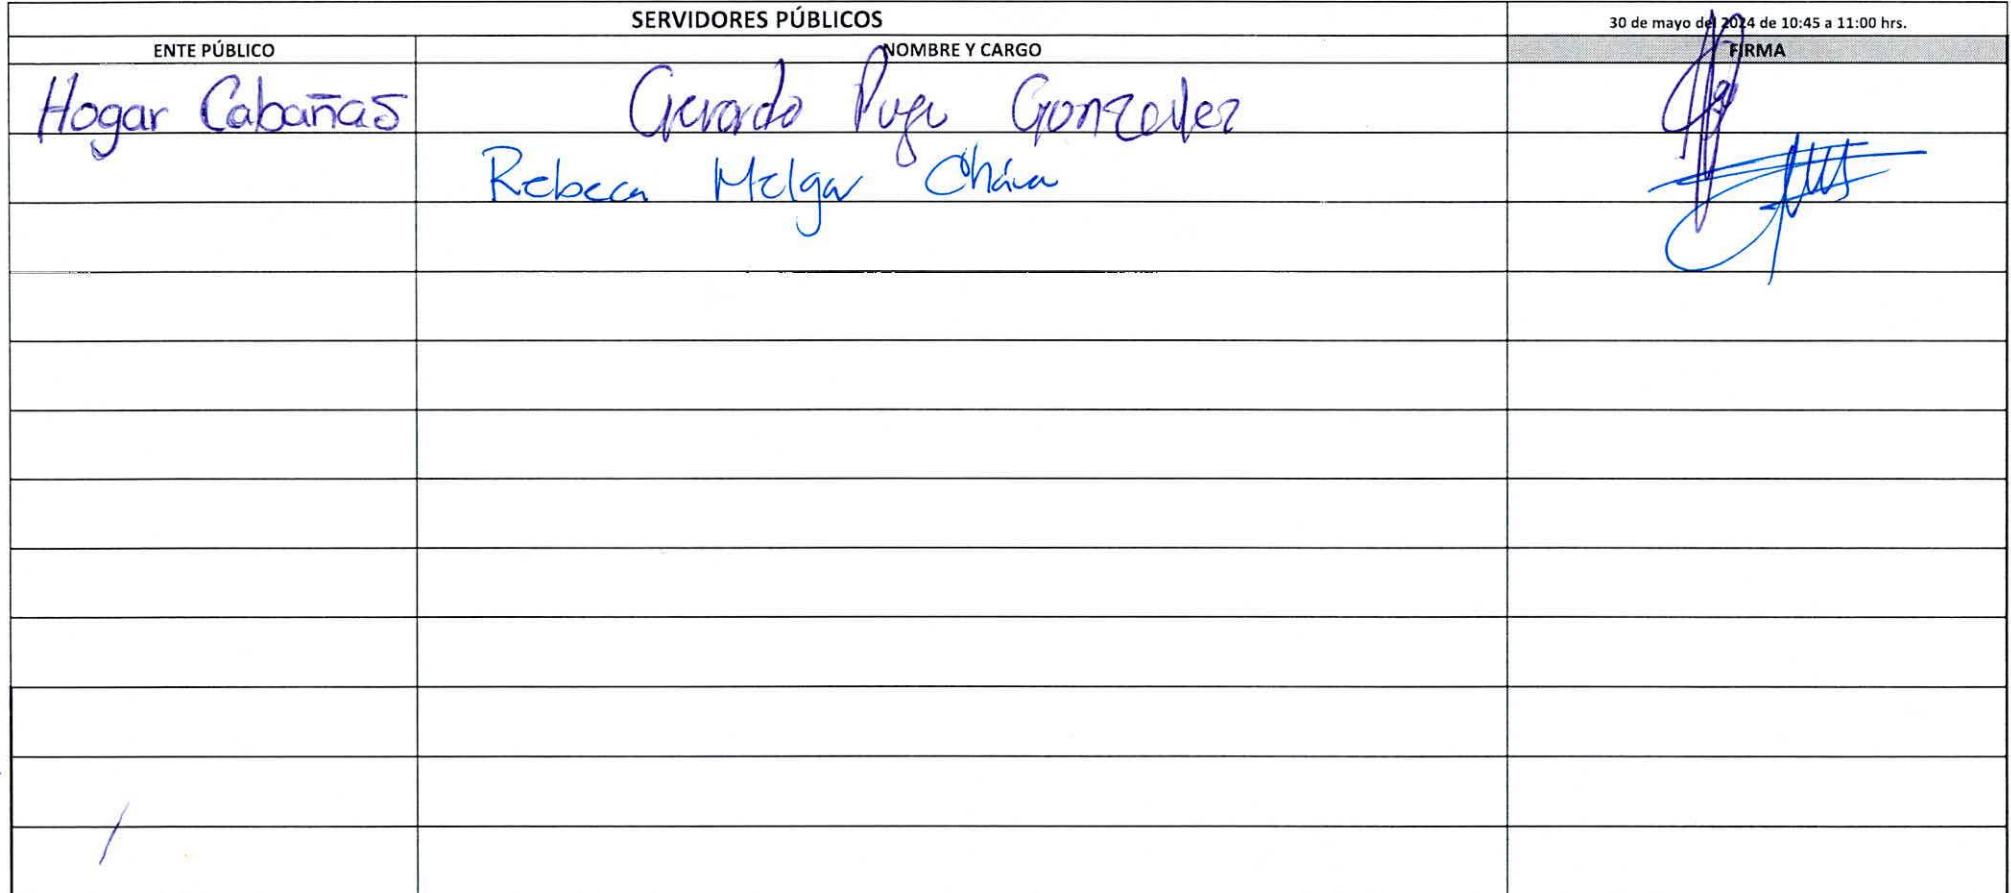 SERVIDORES PÚBLICOS
30 de mayo del 2024 de 10:45 a 11:00 hrs.
ENTE PÚBLICO
NOMBRE Y CARGO
FIRMA
Hogar Cabañas
Gerardo Puga Gonzalez
Rebeca Melgar